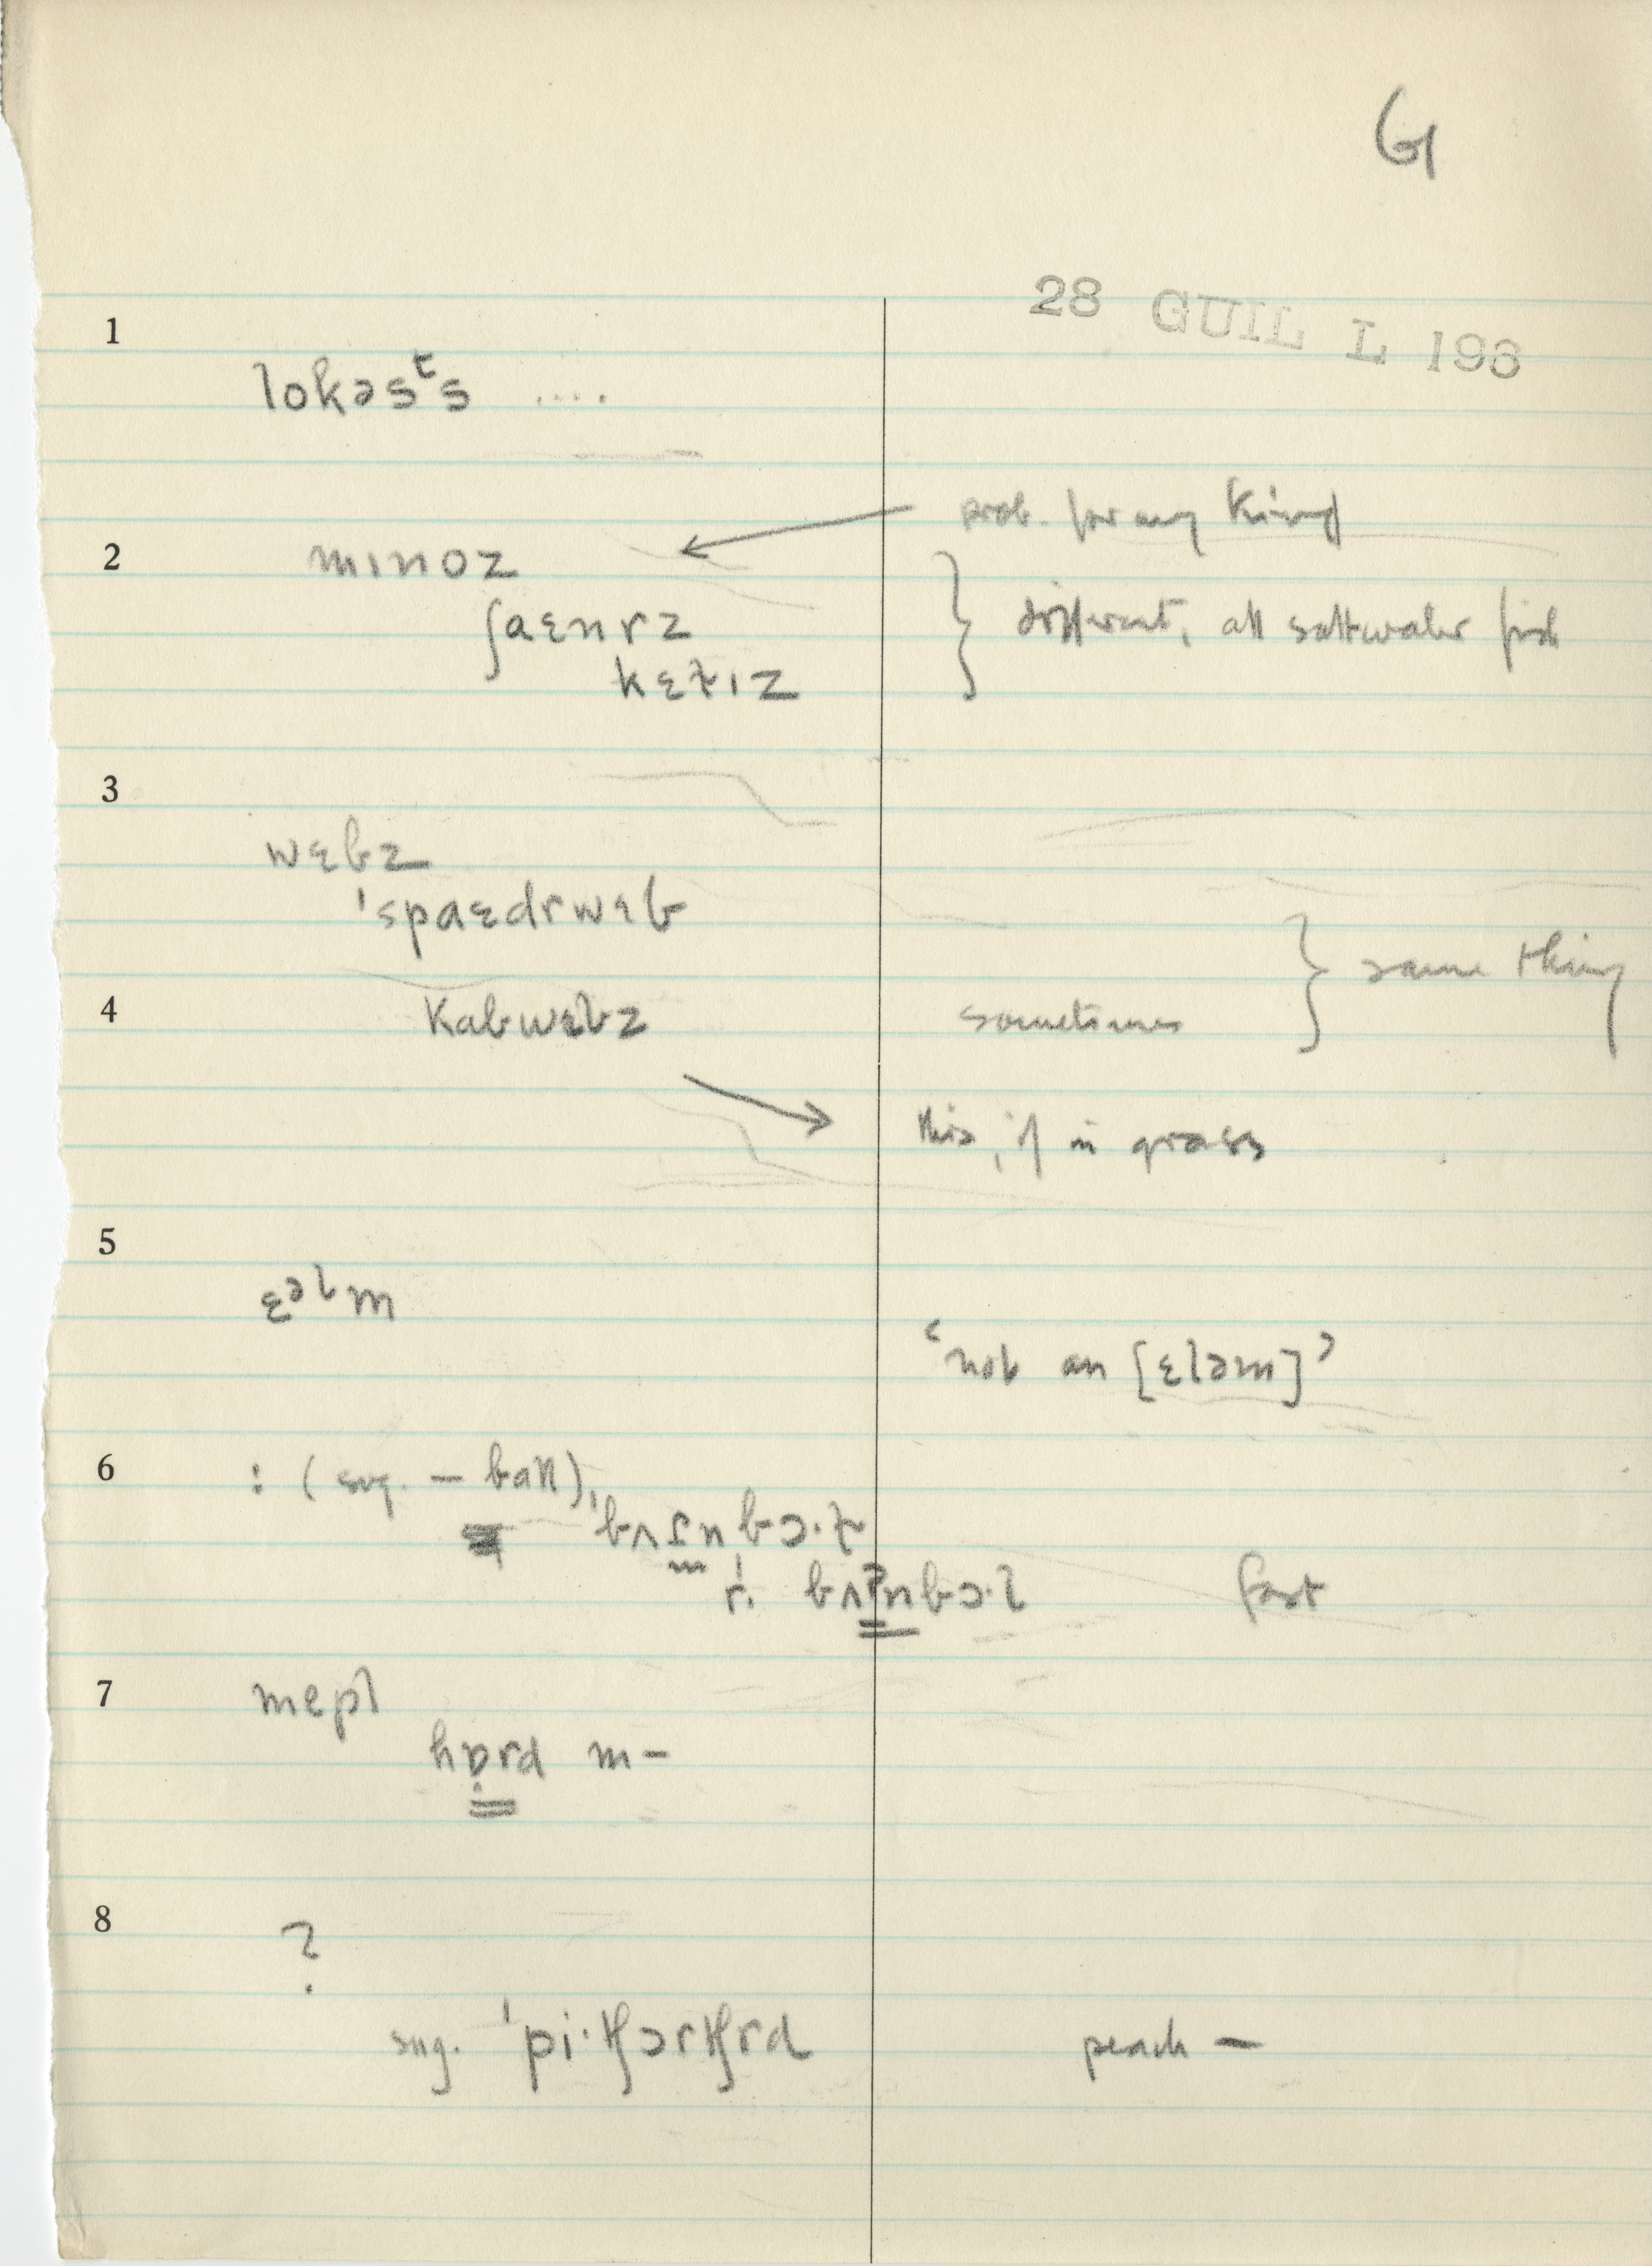 G
28 GUIL L 196
1
lokəsᵗs ....
prob. for any kind
2
mɪnoz
ʃaɛnrz
different, all saltwater fish
kɛɫɪz
3
wɛbz
ˈspaɛdrwɛb
same thing
4
kabwɛbz
sometimes
this, if in grass
5
ɛᵊlm
‘not an [ɛləm]’
6
: (sug. – ball),
r. fast
7
mepl
hɒrd m–
8
?
sug. ˈpi·tʃɔrtʃrd peach –